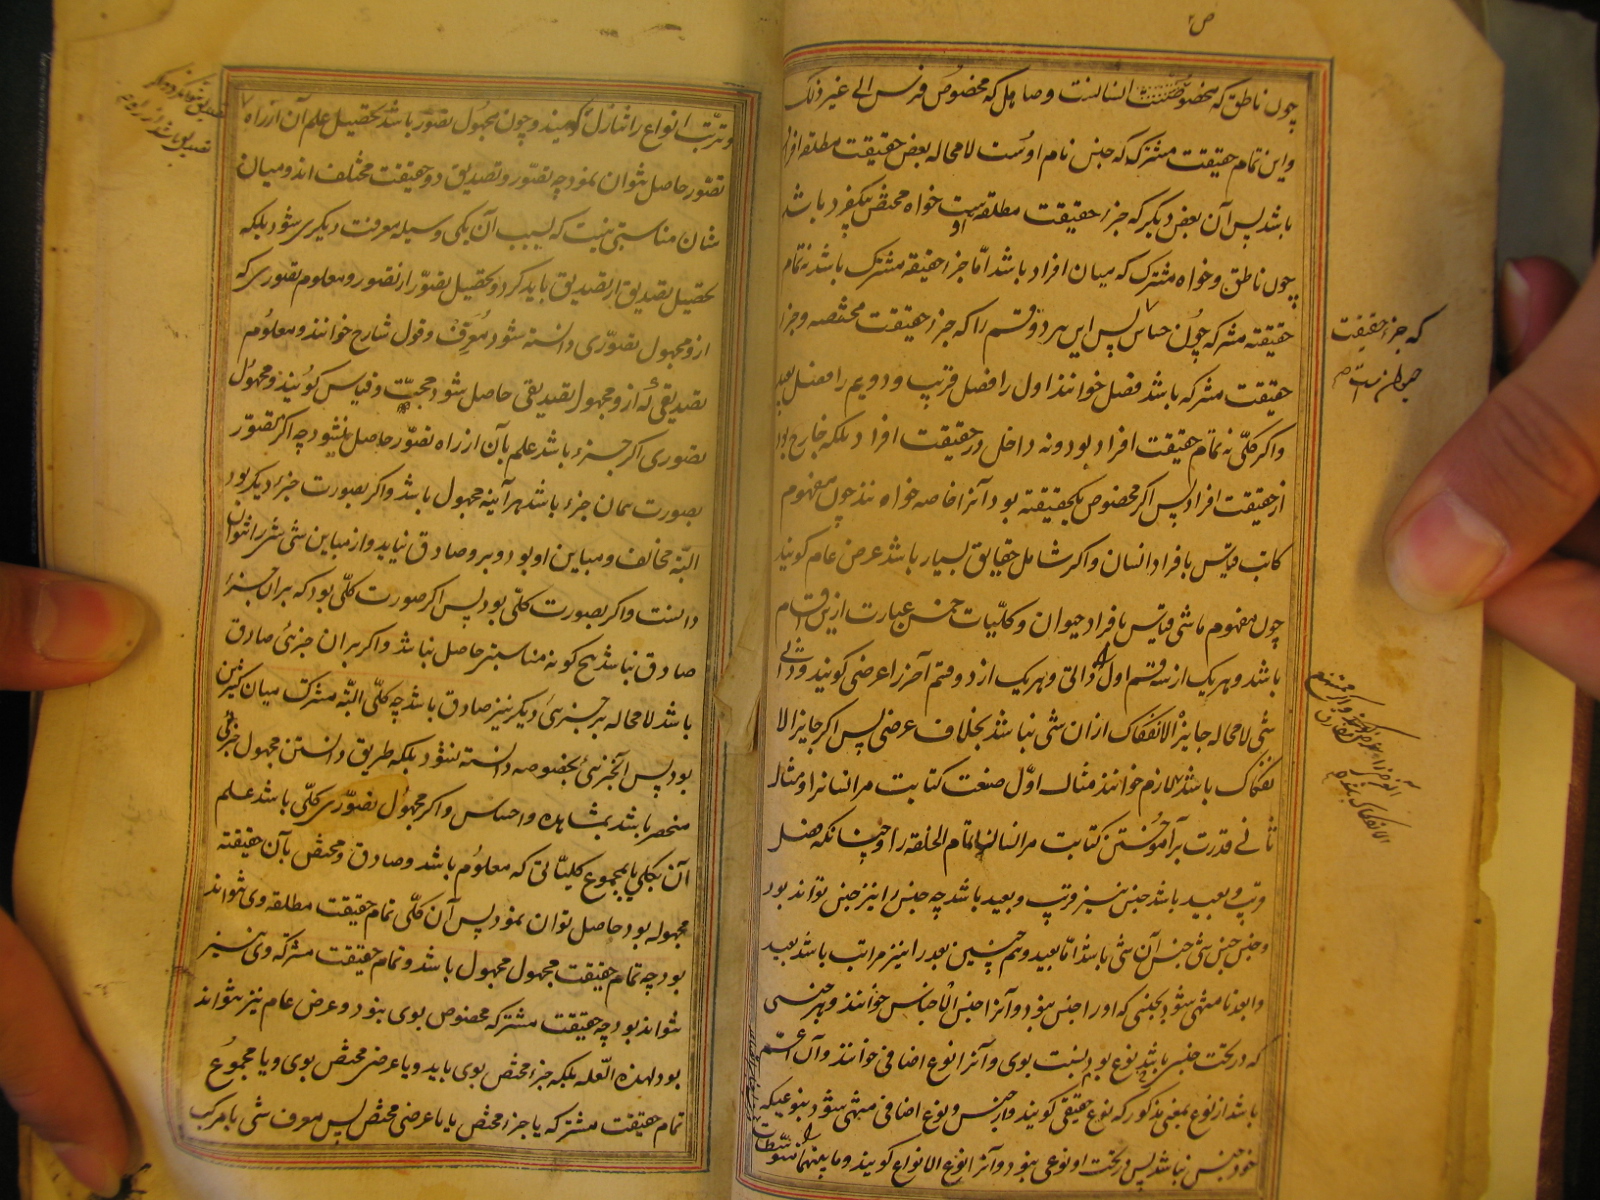 چون ناطق که مخصوص انسانست و صاهل که مخصوص فرس الی غیر ذلک
و این تمام حقیقت مشترک که جنس نام اوست لامحاله بعض حقیقت مطلقه افراد
باشد پس آن بعض دیگر که جزء حقیقت مطلقه اوست خواه مختص بیکفرد باشد
چون ناطق و خواه مشترک که میان افراد باشد امّا جزء حقیقة مشترک باشد نه تمام
حقیقته مشترکه چون حساس پس این هر دو قسم را که جزء حقیقت مختصه و جزء
حقیقت مشترکه باشد فصل خوانند اول را فصل قریب و دویم را فصل بعید
و اگر کلّی نه تمام حقیقت افراد بود و نه داخل در حقیقت افراد بلکه خارج بود
از حقیقت افراد پس اگر مخصوص بیکحقیقته بود آنرا خاصه خوانند چون مفهوم
کاتب قیاس بافراد انسان و اگر شامل حقایق بسیار باشد عرض عام گویند
چون مفهوم ماشی قیاس بافراد حیوان و کلّیات خمس عبارت ازین اقسام
باشد و هر یک از سه قسم اول را ذاتی و هر یک از دو قسم آخر را عرضی گویند و ذاتی
شی لامحاله جایز الانفکاک از ان شی نباشد بخلاف عرضی پس اگر جایز الا
نفکاک باشد لازم خوانند مثال اوّل صنعت کتابت مر انسانرا و مثال
ثانی قدرت بر آموختن کتابت مر انسان تمام الخلقه را و چنانکه فصل
قریب و بعید باشد جنس نیز قریب و بعید باشد چه جنس را نیز جنس تواند بود
و جنس جنس شی جنس آن شی باشد امّا بعید و همچنین بعد را نیز مراتب باشد بعید
و ابعد تا منتهی شود بجنسی که او را جنس نبود و آنرا جنس الاجناس خوانند و هر جنسی
که در تحت جنسی باشد نوع بود نسبت بوی و آنرا نوع اضافی خوانند و آن اعمّ
باشد از نوع بمعنی مذکور که نوع حقیقی گویند و از جنس و نوع اضافی منتهی شود بنوعیکه
خود جنس نباشد پس در تحت او نوعی نبود و آنرا نوع الانواع گویند و ما بینهما متوسطات
که جزء حقیقت
حیوان است
و ترتّب انواع را تنازل گویند و چون مجهول تصوّر باشد تحصیل علم آن از راه
تصوّر حاصل بتوان نمود چه تصوّر و تصدیق دو حقیقت مختلف اند و میان
شان مناسبتی نیست که بسبب آن یکی وسیله معرفت دیگری شود بلکه
تحصیل تصدیق از تصدیق باید کرد و تحصیل تصوّر از تصور و معلوم تصوری که
ازو مجهول تصوّری دانسته شود مُعرِف و قول شارح خوانند و معلومه
تصدیقی که ازو مجهول تصدیقی حاصل شود حجّت و قیاس گویند و مجهول
تصوری اگر جزء باشد علم بآن از راه تصوّر حاصل نشود چه اگر تصوّر
بصورت همان جزء باشد هر آینه مجهول باشد و اگر بصورت جزء دیگر بود
البتّه مخالف و مباین او بود و برو صادق نیاید و از مباین شی شی را نتوان
دانست و اگر بصورت کلّی بود پس اگر صورت کلّی بود که بران جزء
صادق نباشد هیچ گونه مناسبتی حاصل نباشد و اگر بران جزئی صادق
باشد لامحاله بر جزئی دیگر نیز صادق باشد چه کلّی البتّه مشترک میان کثیرین
بود پس آنجزئی بخصوصه دانسته نشود بلکه طریق دانستن مجهول جزئی
منحصر باشد بمشاهده و احساس و اگر مجهول تصوّری کلّی باشد علم
آن بکلی یا بمجموع کلیّاتی که معلوم باشد و صادق و مختص بآن حقیقته
مجهوله بود حاصل توان نمود پس آن کلّی تمام حقیقت مطلقه وی نتواند
بود چه تمام حقیقت مجهول مجهول باشد و تمام حقیقت مشترکه وی نیز
نتواند بود چه حقیقت مشترکه مخصوص بوی نبود و عرض عام نیز نتواند
بود لهذه العله بلکه جزء مختص بوی باید و یا عرضی مختص بوی و یا مجموع
تمام حقیقت مشترکه با جزء مختص یا با عرضی مختص پس معرف شی یا مرکب